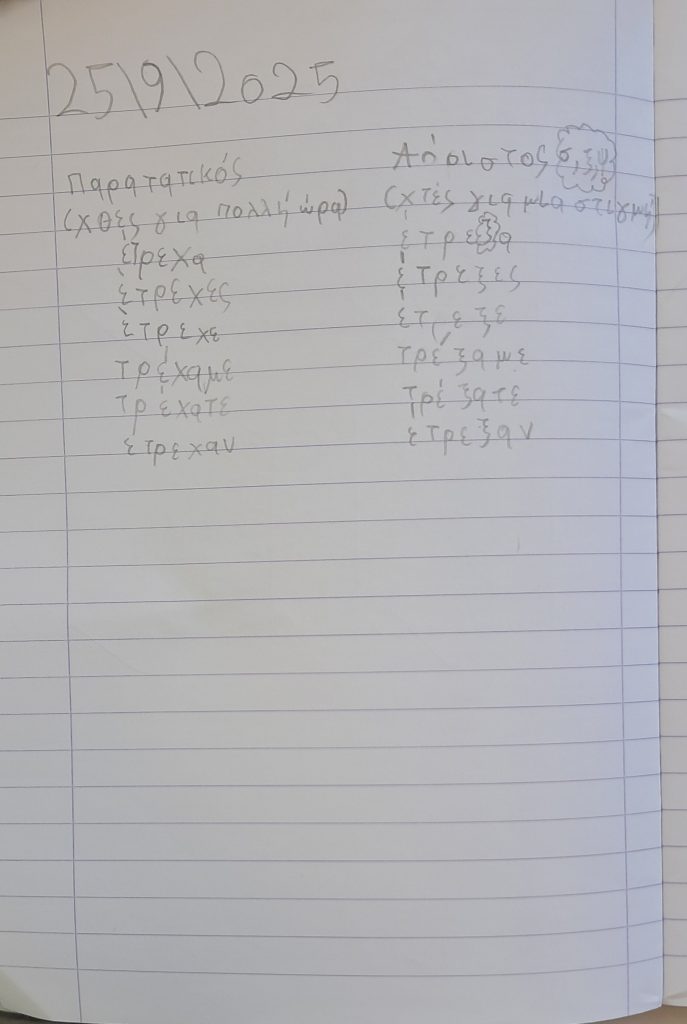 25\9\2025
Παρατατικός Αόριστος σ, ξ, ψ
(χθές για πολλή ώρα) (χτές για μία στιγμή)
έτρεχα έτρεξα
έτρεχες έτρεξες
έτρεχε έτρεξε
τρέχαμε τρέξαμε
τρέχατε τρέξατε
έτρεχαν έτρεξαν